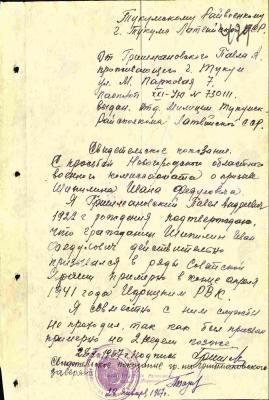 Тукумскому Райвоенкому
г. Тукумс Латвийской ССР.
От Гришмановского Павла А.
проживающего г. Тукум
ул. М. Парковая
Паспорт XII-УЮ № 730111.
выдан. отд. Милиции Тукумск.
Райисполкома Латвийской ССР.
Свидетельское показание.
С просьбой Новгородского областного
военного комиссариата о призыве
Шипилина Ивана Федуловича
Я Гришмановский Павел Андреевич
1922 г рождения подтверждаю,
что гражданин Шипилин Иван
Федулович действительно
призывался в ряды Советской
Армии примерно в конце апреля
1941 года Идрицким РВК.
Я совместно с ним службы
не проходил, так как был призван
примерно на 2 недели позже.
1967 г. Подпись
Свидетельское показание гр. Гришмановского
заверяю
28 января 1967г.